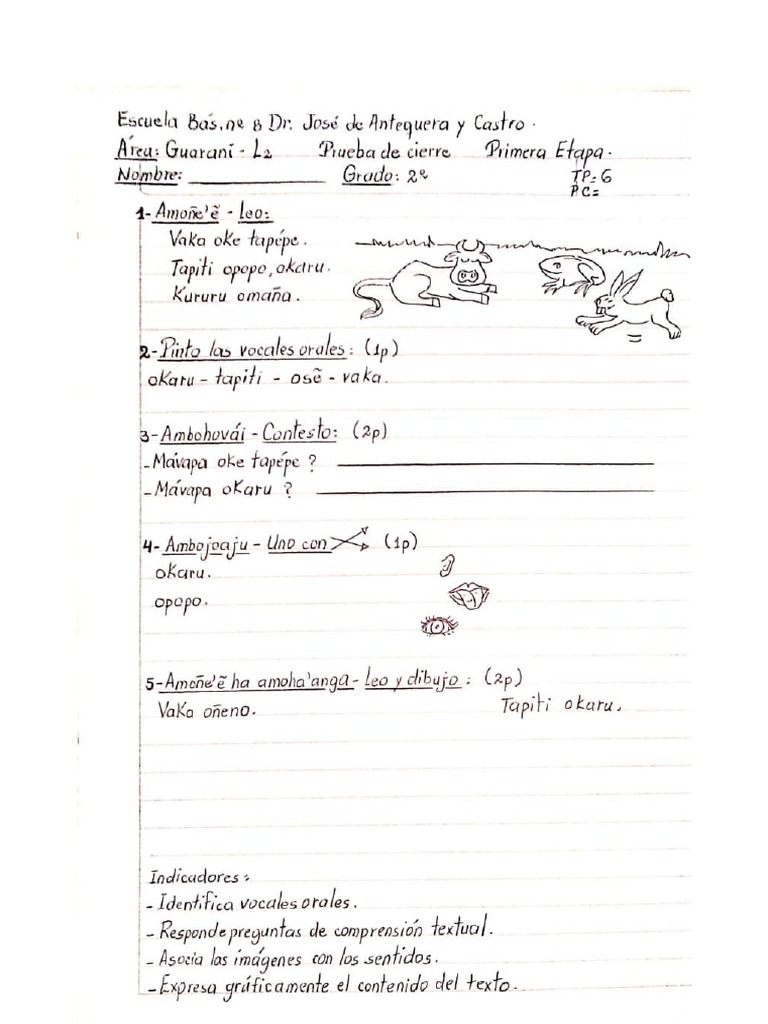 Escuela Bás. nº 8 Dr. José de Antequera y Castro.
Área: Guaraní - L2 Prueba de cierre Primera Etapa.
Nombre: ____________ Grado: 2º TP= 6
PC=
1- Amoñe'ẽ - Leo:
Vaka oke tapépe.
Tapiti opopo, okaru.
Kururu omaña.
2- Pinto las vocales orales: (1p)
okaru - tapiti - osẽ - vaka.
3- Ambohovái - Contesto: (2p)
- Mávapa oke tapépe? ____________
- Mávapa okaru? ____________
4- Ambojoaju - Uno con (1p)
okaru.
opopo.
5- Amoñe'ẽ ha amoha'anga - Leo y dibujo: (2p)
Vaka oñeno. Tapiti okaru.
Indicadores:
- Identifica vocales orales.
- Responde preguntas de comprensión textual.
- Asocia las imágenes con los sentidos.
- Expresa gráficamente el contenido del texto.